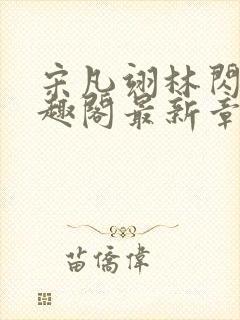 宋凡翊林閃
趣閣最新章
苗僑偉